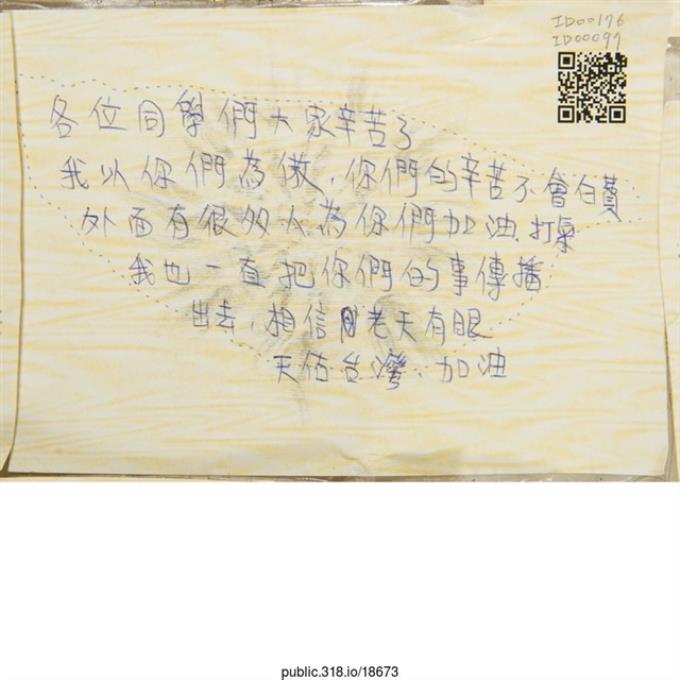 ID00176
ID00097
各位同學們大家辛苦了
我以你們為傲、你們的辛苦不會白費
外面有很多人為你們加油、打氣
我也一直把你們的事傳播
出去、相信老天有眼
天佑台灣、加油
public.318.io/18673